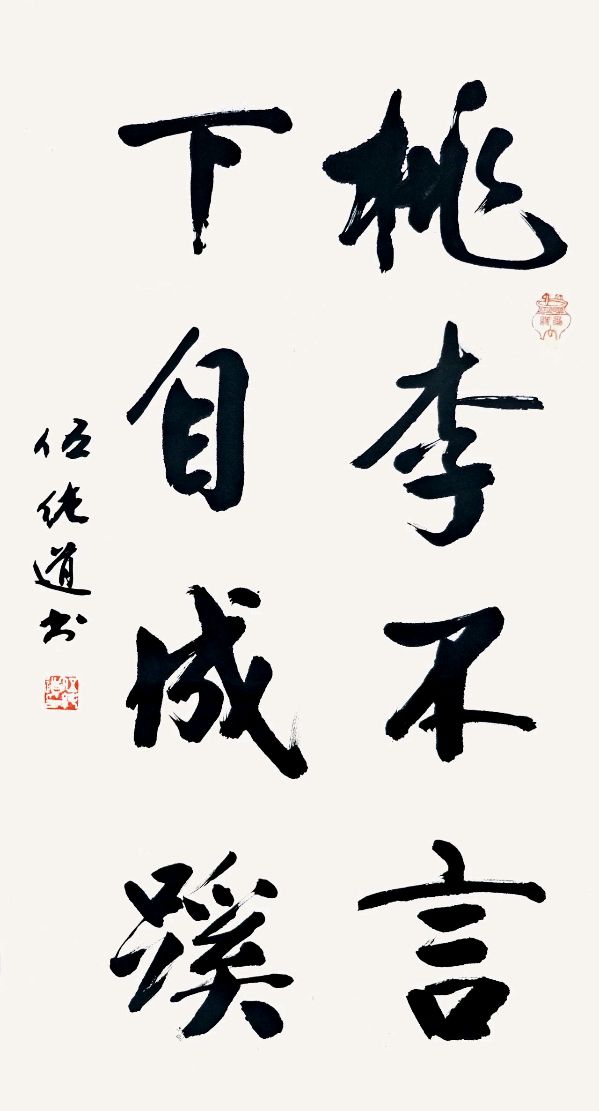 桃李不言
下自成蹊
伍纯道书